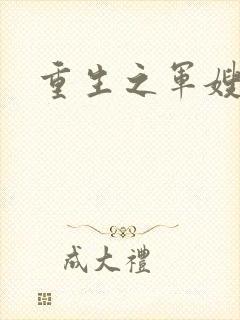 重生之军嫂
成大禮